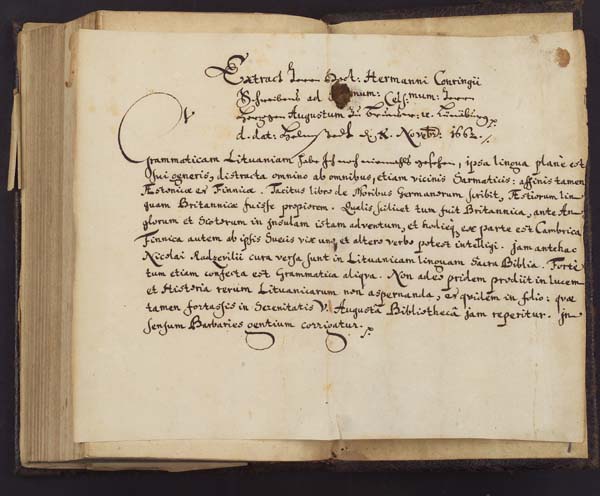 Extract Herrn Doct: Hermanni Conringii
Schreibens ad num: Celsmum: Herrn
Hertzogen Augustum zu Braunschw: u. Lüneburg
d. dat: Helmstedt d. 8. Novebr: 1662.
Grammaticam Lituaniam habe Ich noch niemahls gesehen, ipsa lingua plane est
sui generis, distracta omnino ab omnibus, etiam vicinis Sarmaticis: affinis tamen
Æstonicæ et Finnicæ. Tacitus libro de Moribus Germanorum scribit, Æstiorum lin
guam Britannicæ fuisse propiorem. Qualis scilicet tum fuit Britannica, ante An
glorum et Scotorum in insulam istam adventum, et hodieq; ex parte est Cambrica
Finnica autem ab ipsis Suecis vix uno et altero verbo potest intelligi. Jam antehac
Nicolai Radzevilii cura versa sunt in Lituanicam linguam Sacra Biblia. Forte
tum etiam confecta est Grammatica aliqva. Non adeo pridem prodiit in lucem
et Historia rerum Lituanicarum non aspernanda, et qvidem in folio: quæ
tamen fortassis in Serenitatis V. Augusta Bibliothecâ jam reperitur. In
sensum Barbaries gentium corrigatur.